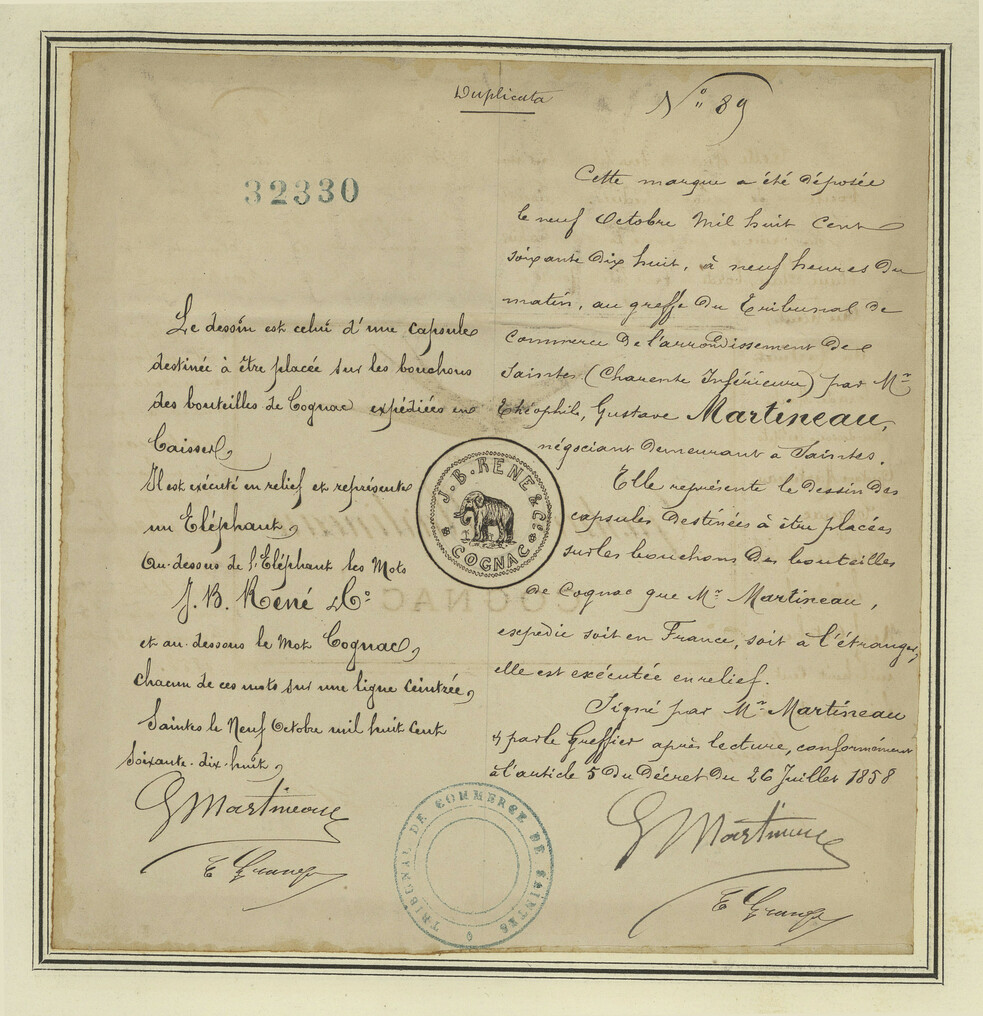 Duplicata
N° 89
32330
Le dessin est celui d'une capsule
destinée à être placée sur les bouchons
des bouteilles de Cognac expédiées en
Caisses,
Il est exécuté en relief et représente
un Eléphant,
Au-dessus de l'Eléphant les Mots
J. B. René & Co
et au-dessous le Mot Cognac,
chacun de ces mots sur une ligne ceintrée,
Saintes le Neuf Octobre mil huit Cent
Soixante-dix-huit,
G Martineau
E Grange
J. B. RENÉ & Co
COGNAC
TRIBUNAL DE COMMERCE DE SAINTES
Cette marque a été déposée
le neuf Octobre Mil huit Cent
soixante dix huit, à neuf heures du
matin, au greffe du Tribunal de
Commerce de l'arrondissement de
Saintes (Charente Inférieure) par Mr
Théophile, Gustave Martineau,
négociant demeurant à Saintes.
Elle représente le dessin des
capsules destinées à être placées
sur les bouchons des bouteilles
de Cognac que Mr Martineau,
expédie soit en France, soit à l'étranger,
elle est exécutée en relief.
Signé par Mr Martineau
& par le Greffier après lecture, conformément
à l'article 5 du Décret du 26 Juillet 1858
G Martineau
E Grange